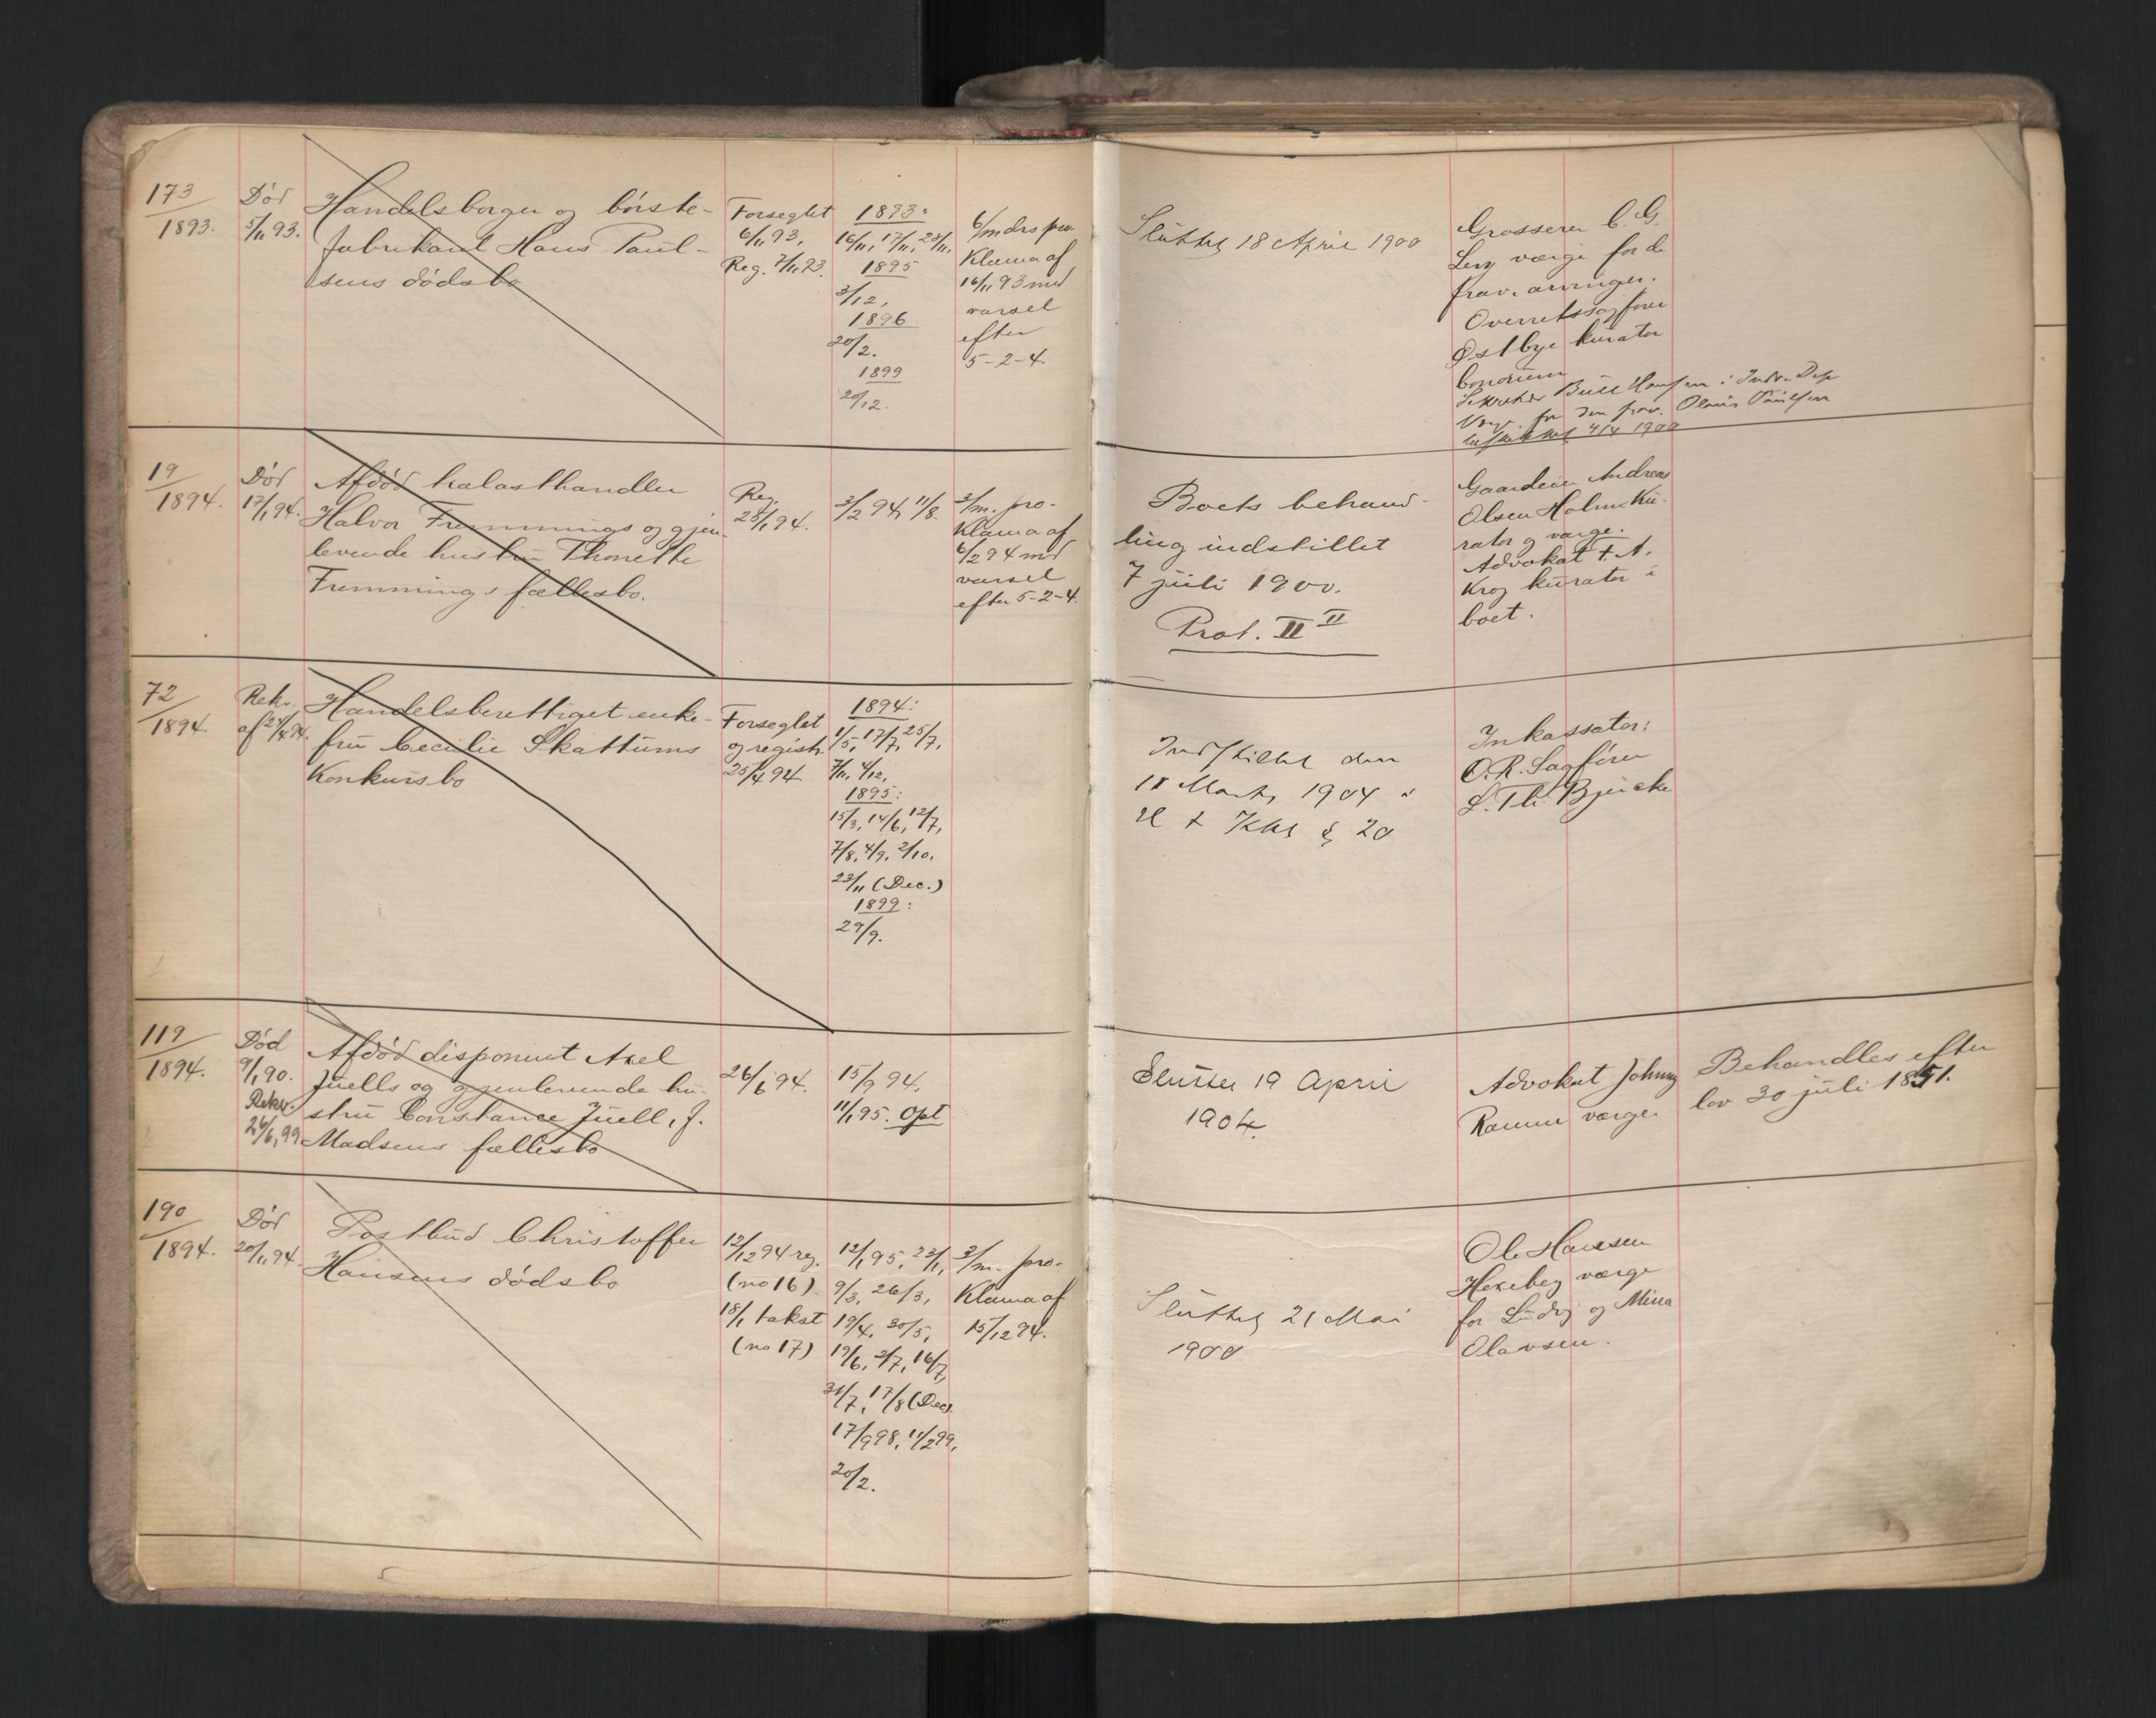 173
1893.
Död
5/11 93.
Handelsborger og börste-
fabrikant Hans Paul-
sens dödsbo
Forseglet
6/11 93,
Reg. 7/11 93.
1893:
16/11, 17/11, 28/11,
1895
3/12,
1896
20/2.
1899
20/12.
6/mdrs pro-
klama af
16/11 93 med
varsel
efter
5-2-4.
Sluttet 18 April 1900
Grosserer C. G.
Levy værge for de
frav. arvinger.
Overretssagförer
Østbye kurator
bonorum
Sekretær Bull Hansen i Indre Dep
Værge for den frav. Olaus Paulsen
beskikket 4/4 1900
19
1894.
Död
17/1 94.
Afdöd kalasthandler
Halvor Fremmings og gjen-
levende hustru Thonette
Fremmings fællesbo.
Reg.
25/1 94.
3/2 94, 11/8.
3/m. pro-
klama af
6/2 94 med
varsel
efter 5-2-4.
Boets behand-
ling indstillet
7 juli 1900.
Prot. II II
Gaardeier Andreas
Olsen Holms ku-
rator og værge.
Advokat F. A.
Krog kurator i
boet.
72
1894.
Rekv.
af 24/4 94.
Handelsberettiget enke-
fru Cecilie Skattums
Konkursbo
Forseglet
og registr.
25/4 94
1894:
1/5, 17/7, 25/7,
7/11, 4/12,
1895:
15/3, 14/6, 12/7,
7/8, 4/9, 2/10,
23/11 (Dec.)
1899:
29/9.
Indstillet den
11 Marts 1904
§ 20
Inkassator:
O.R. Sagförer
L. Th. Bjercke
119
1894.
Död
9/1 90.
Rekv.
26/6, 99
Afdöd disponent Axel
Juells og gjenlevende hu-
stru Constance Juell, f.
Madsens fællesbo
26/6 94.
15/9 94.
11/1 95. Opt
Sluttet 19 April
1904.
Advokat Johnny
Ramm værge.
Behandles efter
lov 30 juli 1851.
190
1894.
Död
20/11 94.
Postbud Christoffer
Hansens dödsbo
12/12 94 reg.
(no 16)
18/1 takst
(no 17)
12/1 95, 23/1,
9/3, 26/3,
19/4, 30/5,
19/6, 2/7, 16/7,
31/7, 17/8 (Dec.)
17/9 98, 11/2 99,
20/2.
3/m. pro-
klama af
15/12 94.
Sluttet 21 Mai
1900
Ole Hansen
Hexeberg værge
for Ludvig og Mina
Olavsen.